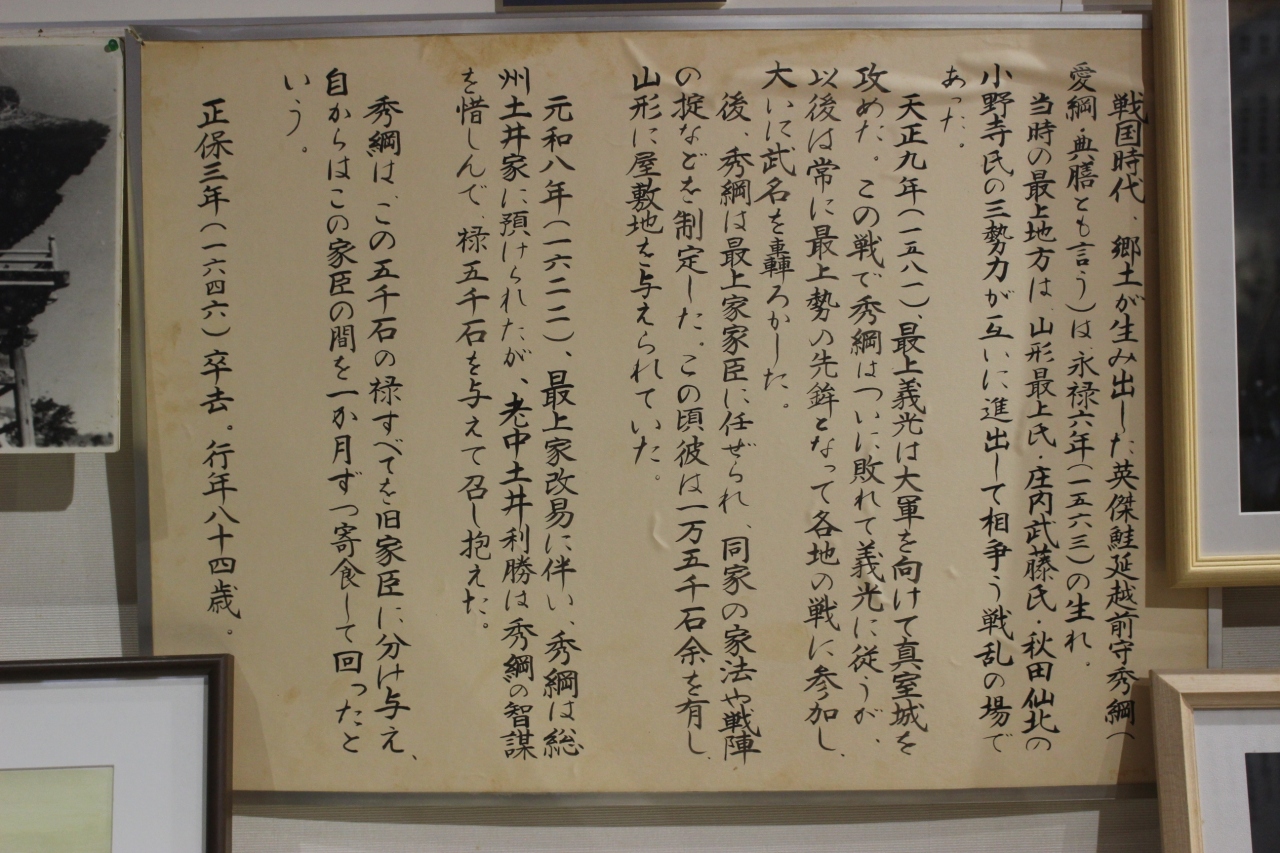 戦国時代、郷土が生み出した英傑鮭延越前守秀綱(
愛綱・典膳とも言う)は、永禄六年(一五六三)の生れ。
当時の最上地方は、山形最上氏・庄内武藤氏・秋田仙北の
小野寺氏の三勢力が互いに進出して相争う戦乱の場で
あった。
天正九年(一五八一)、最上義光は大軍を向けて真室城を
攻めた。この戦で秀綱はついに敗れて義光に従うが、
以後は常に最上勢の先鉾となって各地の戦に参加し、
大いに武名を轟ろかした。
後、秀綱は最上家家臣に任ぜられ、同家の家法や戦陣
の掟などを制定した。この頃彼は一万五千石余を有し、
山形に屋敷地を与えられていた。
元和八年(一六二二)、最上家改易に伴い、秀綱は総
州土井家に預けられたが、老中土井利勝は秀綱の智謀
を惜しんで、禄五千石を与えて召し抱えた。
秀綱は、この五千石の禄すべてを旧家臣に分け与え、
自からはこの家臣の間を一か月ずつ寄食して回ったと
いう。
正保三年(一六四六)卒去。行年八十四歳。